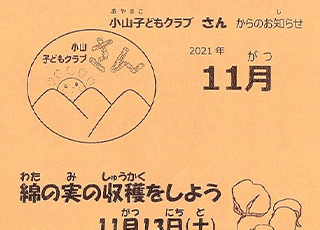 おやまこ し
小山子どもクラブ さん からのお知らせ
小山
子どもクラブ
さん
2021年
がつ
11月
わた み しゅうかく
綿の実の収穫をしよう
がつ にち ど
11月13日(土)